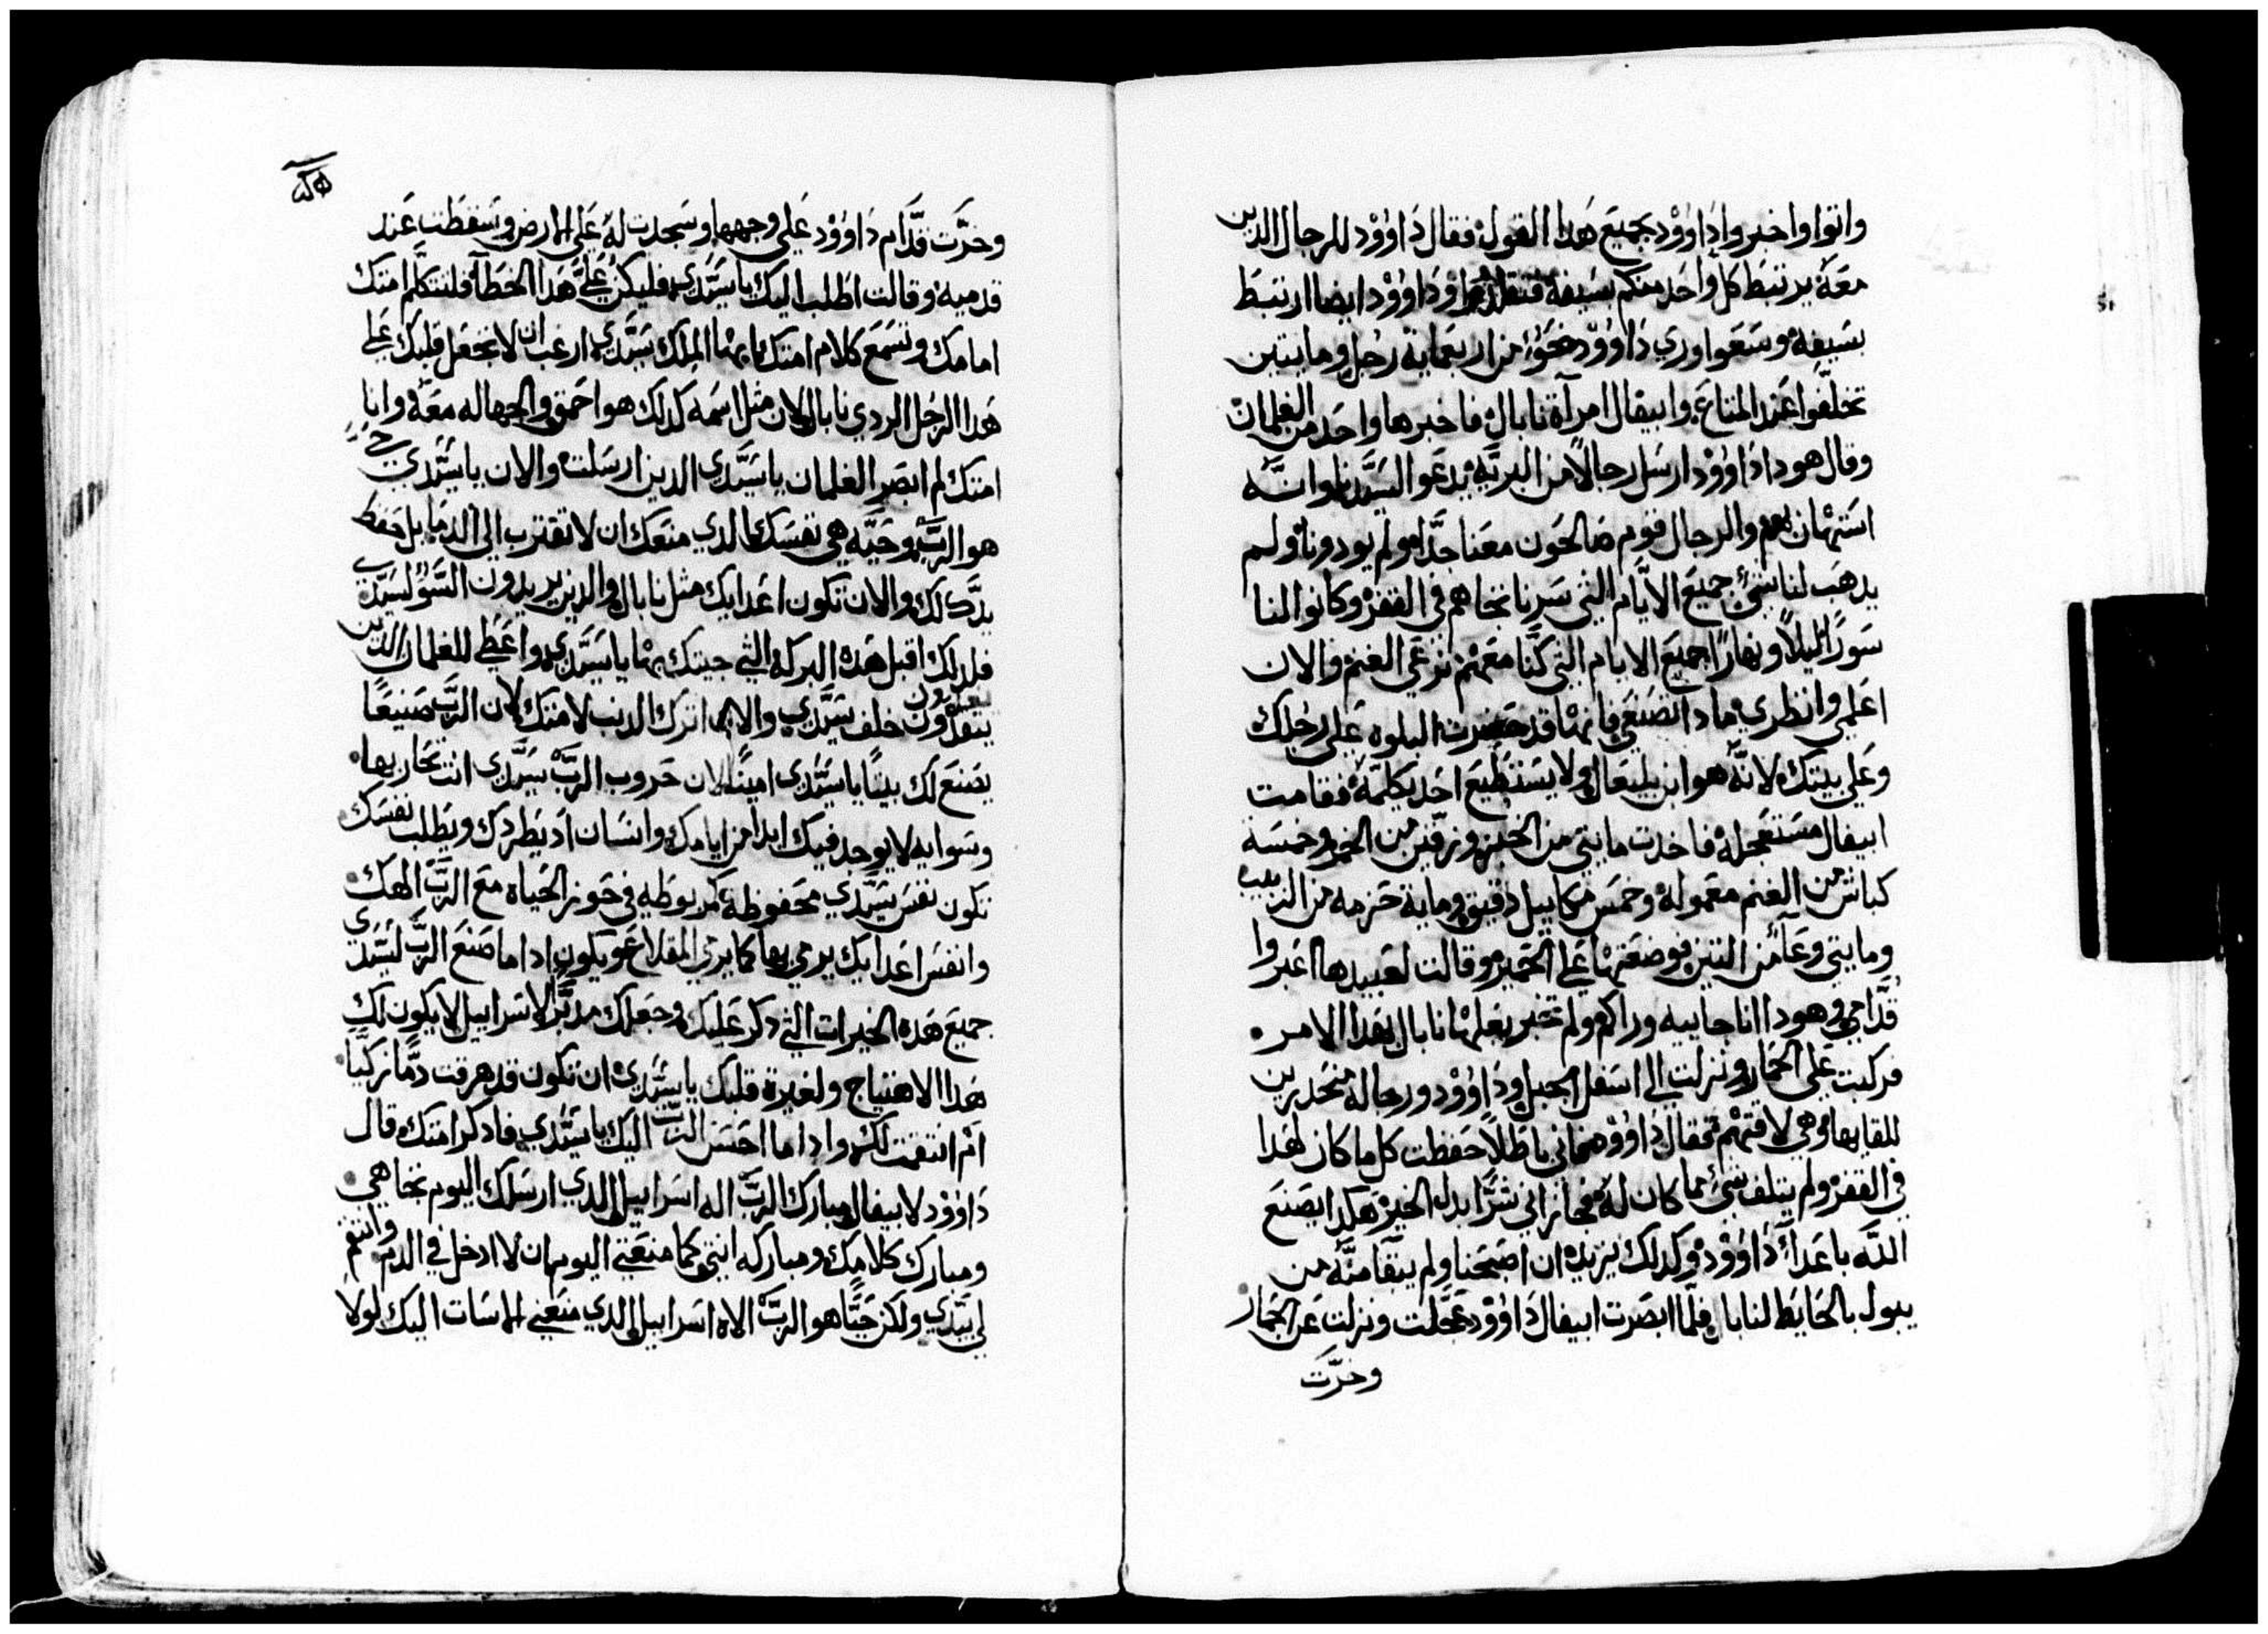 واتوا واخبروا داوُوْد بجميع هدا القول فقال داوُوْد للرجال الدين
معه يرتبط كل واحد منكم بسيفه فتقلدوا وداوُوْد ايضا ارتبط
بسيفه وسعوا وري داوُوْد نحوٌ من اربعماية رجل ومايتين
تخلّفوا عند المتاع وابيقال امرآة نابال فاخبرها واحد من الغلمان
وقال هودا داوُوْد ارسل رجالاً من البريّه يدعو السيّدنا وانّه
استهان بهم والرجال قوم صالحون معنا جدًّا ولم يودونا ولم
يدهب لنا شيٌ جميع الايّام التي سرنا تجاهم في القفر وكانوا لنا
سورًا ليلاً ونهارًا جميع الايام التي كنّا معهم نرعى الغنم والان
اعلمي وانظري مادا تصنعي فانها قد حضرت البلوه على رجلك
وعلى بيتك لانّه هو ابن بليعال ولا يستطيع احد يكلمه فقامت
ابيقال مستعجله فاخدت مايتي من الخبز وزقّين من الخمر وخمسة
كباش من الغنم معموله وخمس مكاييل دقيق وماية حزمه من الزبيب
ومايتي وعآ من التين فوضعتها على الحمير وقالت لعبيدها اعبروا
قدّامي وهودا انا جاييه وراكم ولم تخبر بعلها نابال بهدا الامر
فركبت على الحمار ونزلت الى اسفل الجبل وداوُوْد ورجاله منحدرين
للقايها وهي لاقتهم فقال داوُوْد مجانى باطلاً حفظت كل ما كان لهدا
في القفر ولم يتلف شيٌ مما كان له فجازاني شرًّا بدل الخير هكدا يصنع
اللّه باعدآ داوُوْد وكدلك يزيده ان اصبحنا ولم يبقا منّه من
يبول بالحايط لنابال فلمّا ابصرت ابيقال داوُوْد عجّلت ونزلت عن الحمار
وخرّت
وخرّت قدّام داوُوْد على وجهها وسجدت له على الارض وسقطت عند
قدميه وقالت اطلب اليك يا سيّدي فليكن عليَّ هدا الخطآ فلتتكلّم امتك
امامك وتسمع كلام امتك ايها الملك سيّدي ارغب ان لا تجعل قلبك على
هدا الرجل الردي نابال لان مثل اسمه كدلك هو احمق والجهاله معه وانا
امتك لم ابصر الغلمان يا سيّدي الدين ارسلت والان يا سيّدي حيٌّ
هو الربّ وحيّه هي نفسك الدي منعك ان لا تقترب الى الدما بل حفظ
يدّك لك والان تكون اعدايك مثل نابال والدين يريدون السّوُ لسيّدي
فلدلك اقبل هده البركه التي جيتك بها يا سيّدي واعطي للغلمان الدين
خلف سيّدي والان اترك الدنب لامتك لان الربّ صنيعًا
يصنع لك بيتًا يا سيّدي امينًا لان حروب الربّ سيّدي انت تحاربها
وسوايه لا يوجد فيك ابدًا من ايامك وانسان اد يطردك ويطلب نفسك
تكون نفس سيّدي محفوظه مربوطه في حوز الحياه مع الربّ الهك
وانفس اعدايك يرمي بها كما يرمي المقلاع ويكون ادا ما صنع الربّ لسيّدي
جميع هده الخيرات التي دكر عليك وجعلك مدبّرًا لاسراييل لا يكون لك
هدا الاهتياج ولغيرة قلبك يا سيّدي ان تكون قد هرقت دمًّا زكيًّا
ام انتقمت لك وادا ما احسن الربّ اليك يا سيّدي فادكر امتك قال
داوُوْد لابيقال مبارك الربّ اله اسراييل الدي ارسلك اليوم تجاهي
ومبارك كلامك ومباركه انتي كما منعتي اليوم ان لا ادخل في الدم وانتقم
لي يدّي ولكن حيًّا هو الربّ الاه اسراييل الدي منعني الاساة اليك لولا